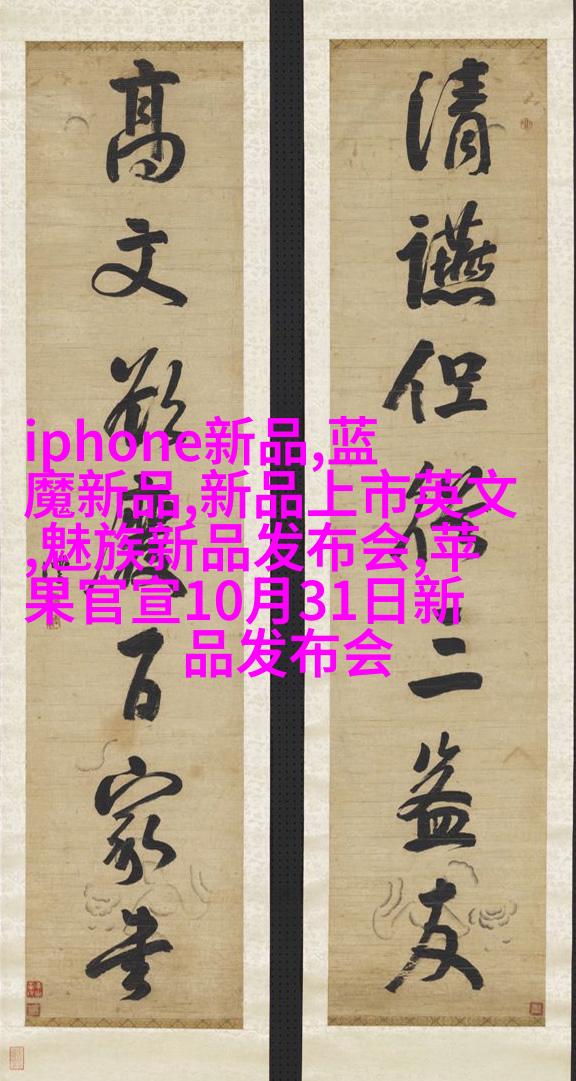 清讌但三益友
高文欲百家書
iphone新品,蓝
魔新品,新品上市英文
,魅族新品发布会,苹
果官宣10月31日新
品发布会